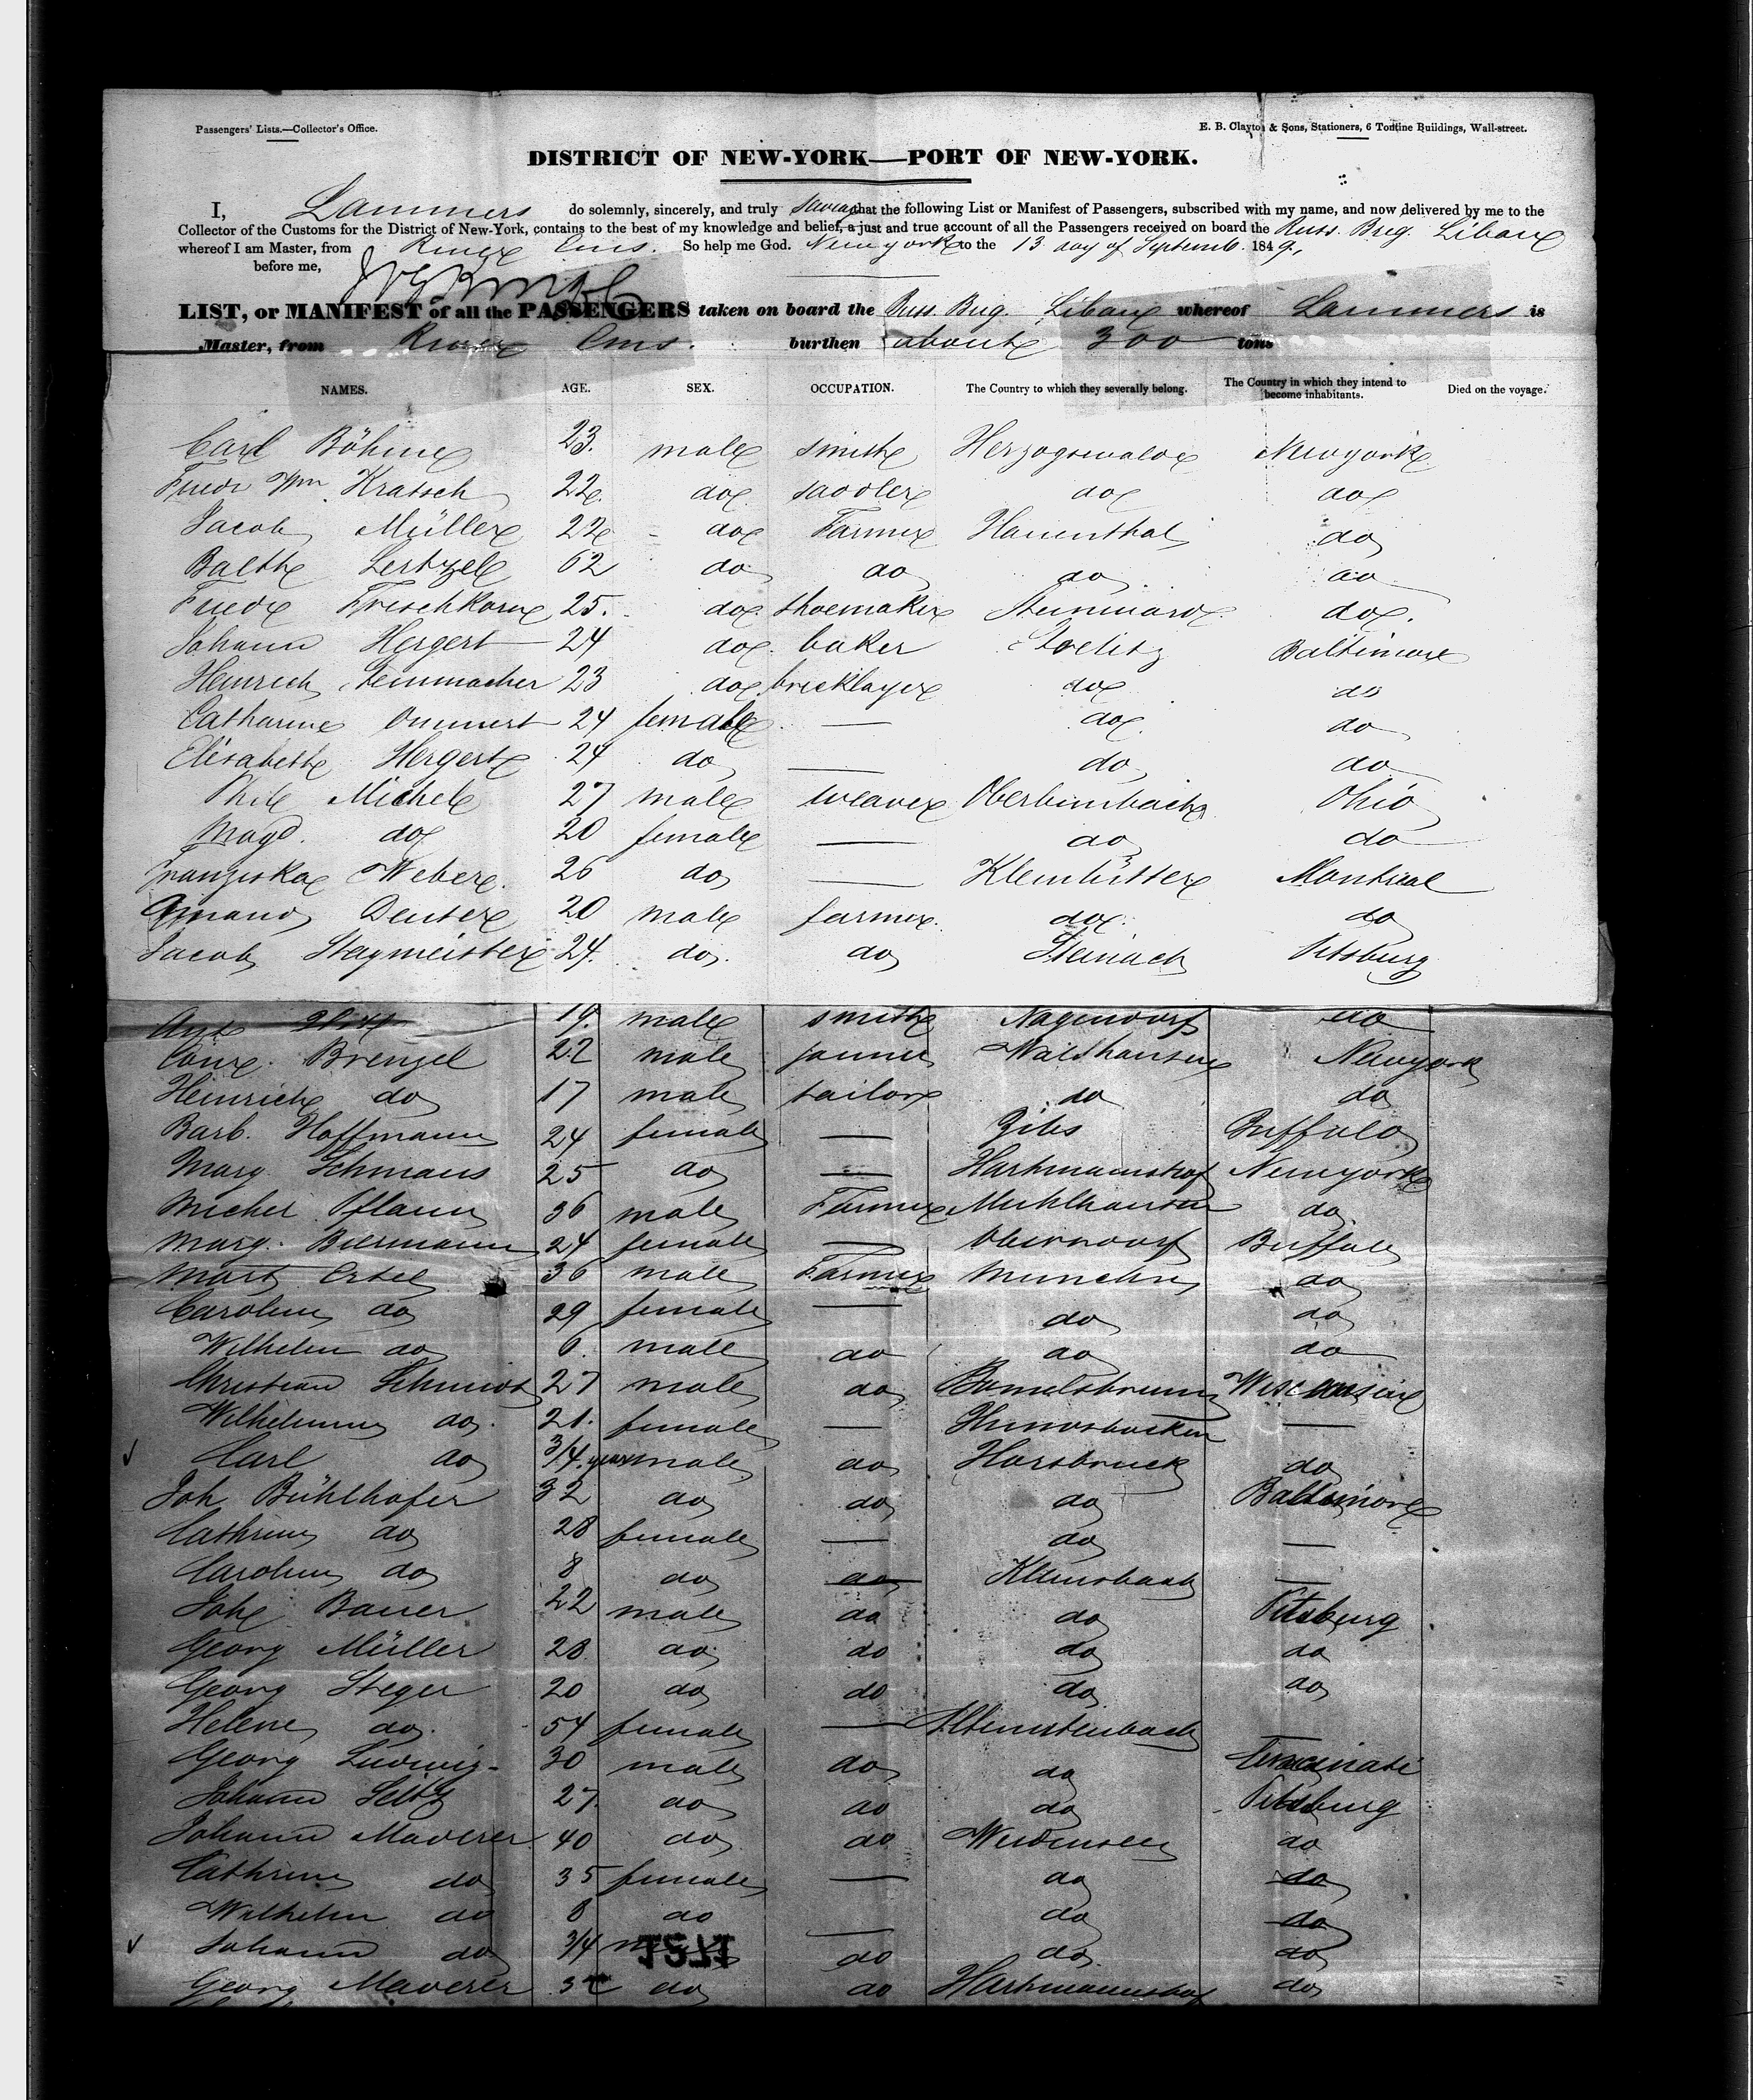 Passengers' Lists.—Collector's Office.
E. B. Clayton & Sons, Stationers, 6 Tontine Buildings, Wall-street.
DISTRICT OF NEW-YORK—PORT OF NEW-YORK.
I, Lammers do solemnly, sincerely, and truly swear that the following List or Manifest of Passengers, subscribed with my name, and now delivered by me to the
Collector of the Customs for the District of New-York, contains to the best of my knowledge and belief, a just and true account of all the Passengers received on board the Russ. Brig. Libau
whereof I am Master, from River Ems. So help me God. Newyork to the 13 day of Septemb. 1849.
before me,
LIST, or MANIFEST of all the PASSENGERS taken on board the Russ. Brig. Libau whereof Lammers is
Master, from River Ems. burthen about 300 tons
NAMES. AGE. SEX. OCCUPATION. The Country to which they severally belong. The Country in which they intend to become inhabitants. Died on the voyage.
Carl Böhme 23. male smith Herzogswalde Newyork
Friedr Wm Kratsch 22 do saddler do do
Jacob Müller 22 do Farmer Hanenthal do
Balth 62 do do do do
Friedr Freschkorn 25. do shoemaker do.
Johann Hergert 24 do. baker Baltimore
Heinrich Steinmacher 23 do bricklayer do do
Catharine Ommert 24 female — do do
Elisabeth Hergert 24 do — do do
Phil Michel 27 male weaver Oberbimbach Ohio
Magd. do 20 female — do do
Franziska Weber 26 do — Kleinlütter Montreal
Amand Deuter 20 male farmer. do. do
Jacob Stagmeister 24. do. do Steinach Pitsburg
19. male smith Nagendorf do
Conr. Brengel 22 male joiner Walshausen Newyork
Heinrich do 17 male tailor do do
Barb. Hoffmann 24 female — Buffalo
Marg. Schmaus 25 do — Hartmannshof Newyork
Michel Pflaum 36 male Farmer Muhlhausen do
Marg. Biermann 24 female — Oberndorf Buffalo
Mart Ertel 36 male Farmer Munchen do
Carolin do 29 female — do do
Wilhelm do 6. male do do do
Christian Schmidt 27 male do Wisconsin
Wilhelmin do. 21. female — —
Carl do 3/4 year male do Harsbruck do
Joh Bühlhofer 32 do do do Baltimore
Cathrin do 28 female — do —
Carolin do 8 do do Kleinsbach —
Joh Bauer 22 male do do Pitsburg
Georg Müller 28 do do do do
Georg Steger 20 do do do do
Helene do. 54 female —
Georg Ludwig 30 male do do Cincinati
Johann Seitz 27. do do do Pitsburg
Johann Maderer 40 do do do
Cathrin do 35 female — do do
Wilhelm do 8 do — do do
Johann do 3/4 do do do
Georg Maderer do do Hartmannshof do